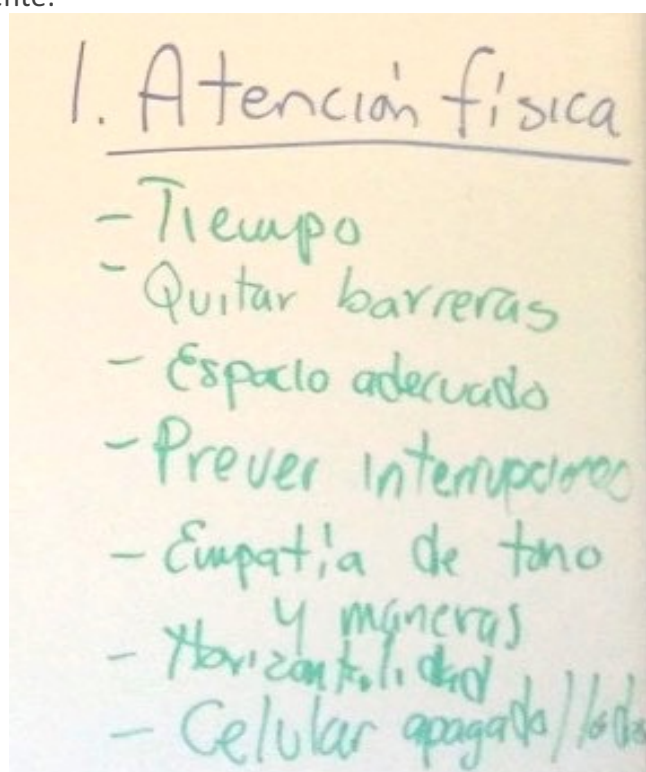 ente.
1. Atención física
- Tiempo
- Quitar barreras
- Espacio adecuado
- Prever interrupciones
- Empatía de tono
y maneras
- Horizontalidad
- Celular apagado/